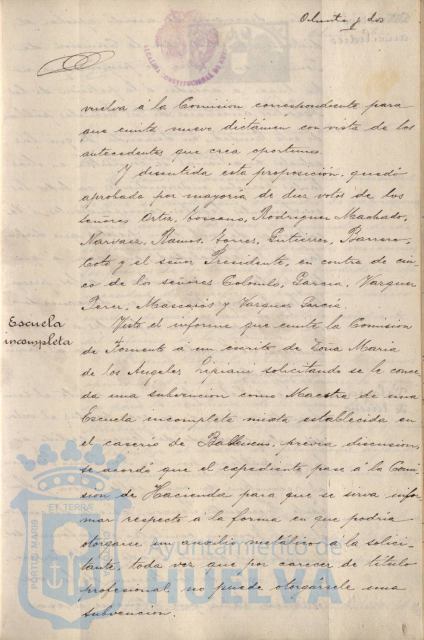 Ochenta y dos
vuelva á la Comision correspondiente para
que emita nuevo dictámen con vista de los
antecedentes que crea oportunos.
Y discutida esta proposicion, quedó
aprobada por mayoria de diez votos de los
señores Ortiz, Toscano, Rodriguez Machado,
Narvaez, Ramos, Torres, Gutierrez, Barrero,
Coto y el señor Presidente, en contra de cin-
co de los señores Colombo, Garcia, Vazquez
Perez, Mascarós y Vazquez Garcia.
Escuela
incompleta
Visto el informe que emite la Comision
de Fomento á un escrito de Doña Maria
de los Angeles Cipriani solicitando se le conce-
da una subvencion como Maestra de una
Escuela incompleta mixta establecida en
el caserio de , prévia discusion,
se acordó que el expediente pase á la Comi-
sion de Hacienda para que se sirva infor-
mar respecto á la forma en que podria
otorgarse un auxilio metálico á la solici-
tante, toda vez que por carecer de título
profesional, no puede otorgársele una
subvencion.
PORTUS MARIS
ET TERRÆ
Ayuntamiento de
HUELVA